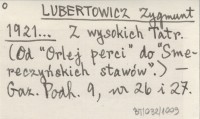 LUBERTOWICZ Zygmunt
1921... Z wysokich Tatr.
(Od "Orlej perci" do "Sme-
reczyńskich stawów".) —
Gaz. Podh. 9, nr 26 i 27.